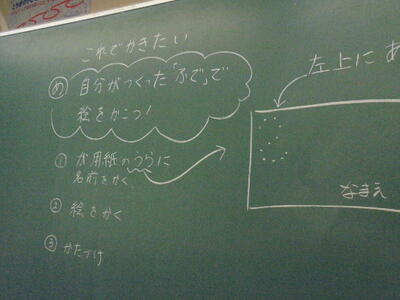 これでかきたい
め 自分がつくった「ふで」で
絵をかこう!
① が用紙のうらに
名前をかく
② 絵をかく
③ かたづけ
左上に
なまえ